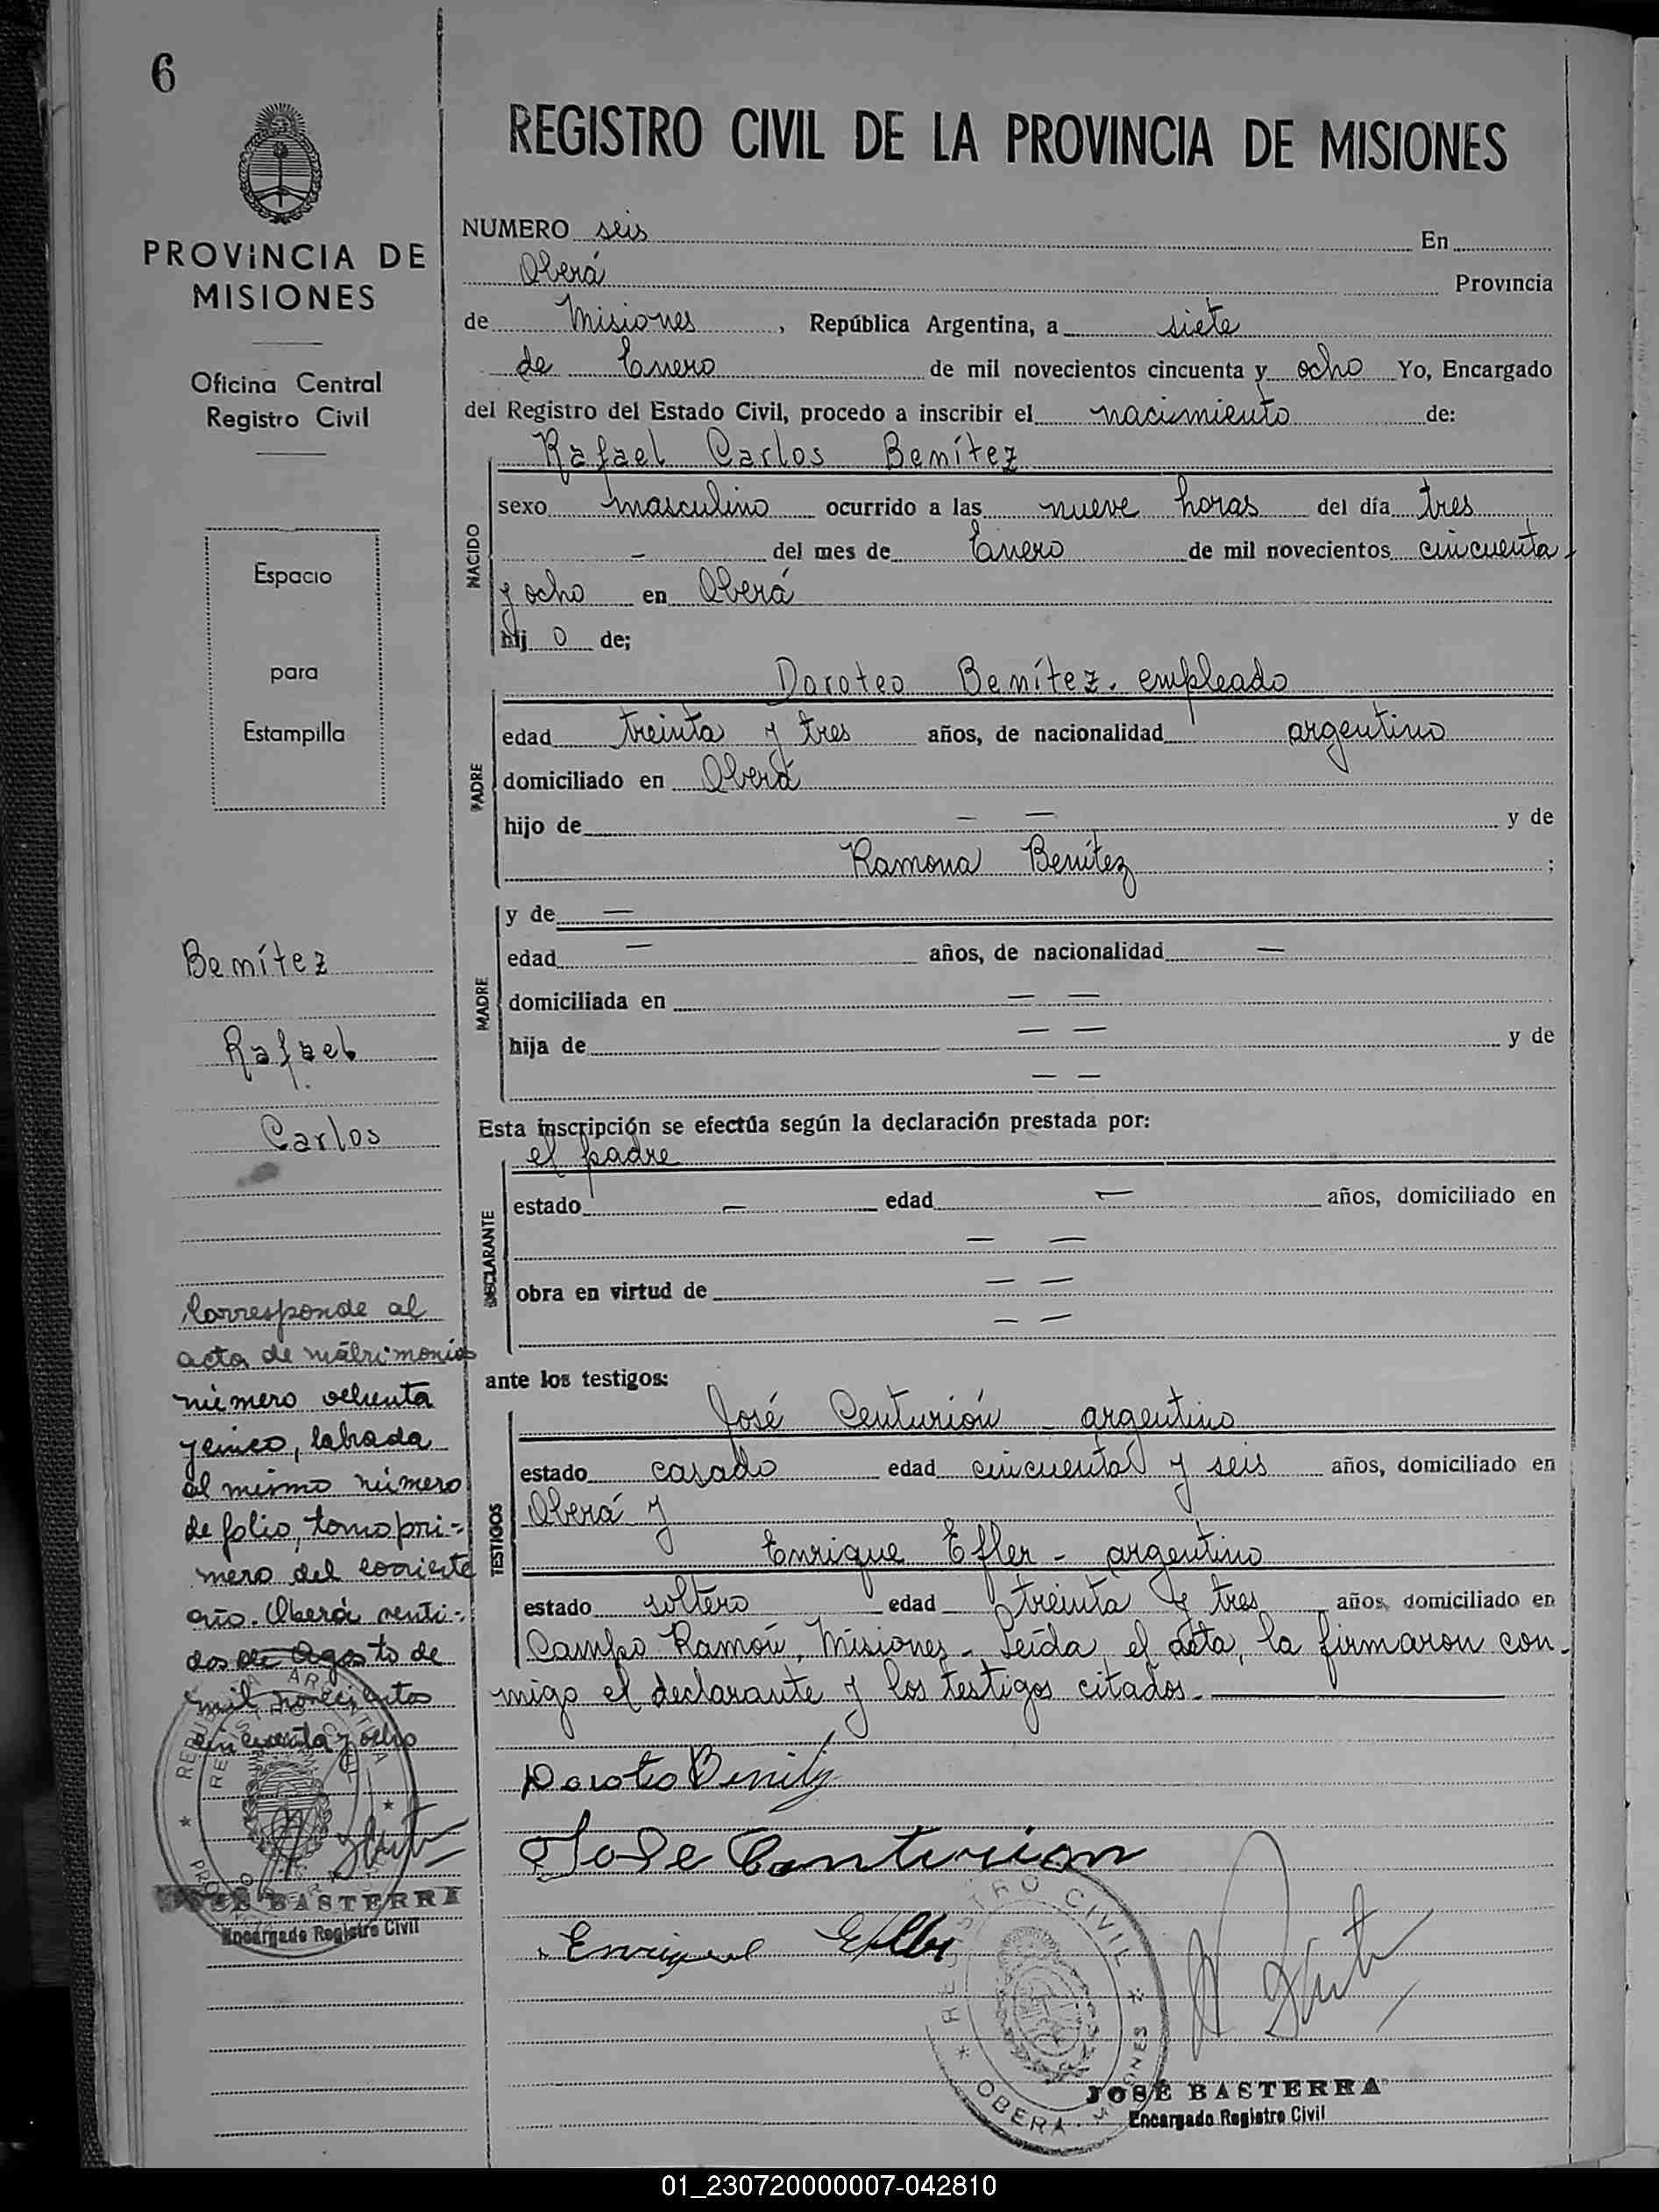 6
PROVINCIA DE
MISIONES
Oficina Central
Registro Civil
Espacio
para
Estampilla
Benítez
Rafael
Carlos
Corresponde al
acta de matrimonio
número ochenta
y cinco, labrada
al mismo número
de folio, tomo pri-
mero del corriente
año. Oberá venti-
dos de Agosto de
mil novecientos
cincuenta y ocho
JOSÉ BASTERRA
Encargado Registro Civil
REGISTRO CIVIL DE LA PROVINCIA DE MISIONES
NUMERO seis En
Oberá Provincia
de Misiones, República Argentina, a siete
de Enero de mil novecientos cincuenta y ocho Yo, Encargado
del Registro del Estado Civil, procedo a inscribir el nacimiento de:
Rafael Carlos Benítez
NACIDO
sexo masculino ocurrido a las nueve horas del día tres
- del mes de Enero de mil novecientos cincuenta
y ocho en Oberá
hij o de;
PADRE
Doroteo Benítez. empleado
edad treinta y tres años, de nacionalidad argentino
domiciliado en Oberá
hijo de — — y de
Ramona Benítez ;
MADRE
y de —
edad — años, de nacionalidad —
domiciliada en — —
hija de — — y de
— —
Esta inscripción se efectúa según la declaración prestada por:
el padre
DECLARANTE
estado — edad — años, domiciliado en
— —
obra en virtud de — —
— —
ante los testigos:
TESTIGOS
José Centurión - argentino
estado casado edad cincuenta y seis años, domiciliado en
Oberá y
Enrique Efler - argentino
estado soltero edad treinta y tres años, domiciliado en
Campo Ramón, Misiones - Leída el acta, la firmaron con-
migo el declarante y los testigos citados.
Doroteo Benitez
Jose Centurion
REGISTRO CIVIL
OBERA MISIONES
JOSÉ BASTERRA
Encargado Registro Civil
01_230720000007-042810